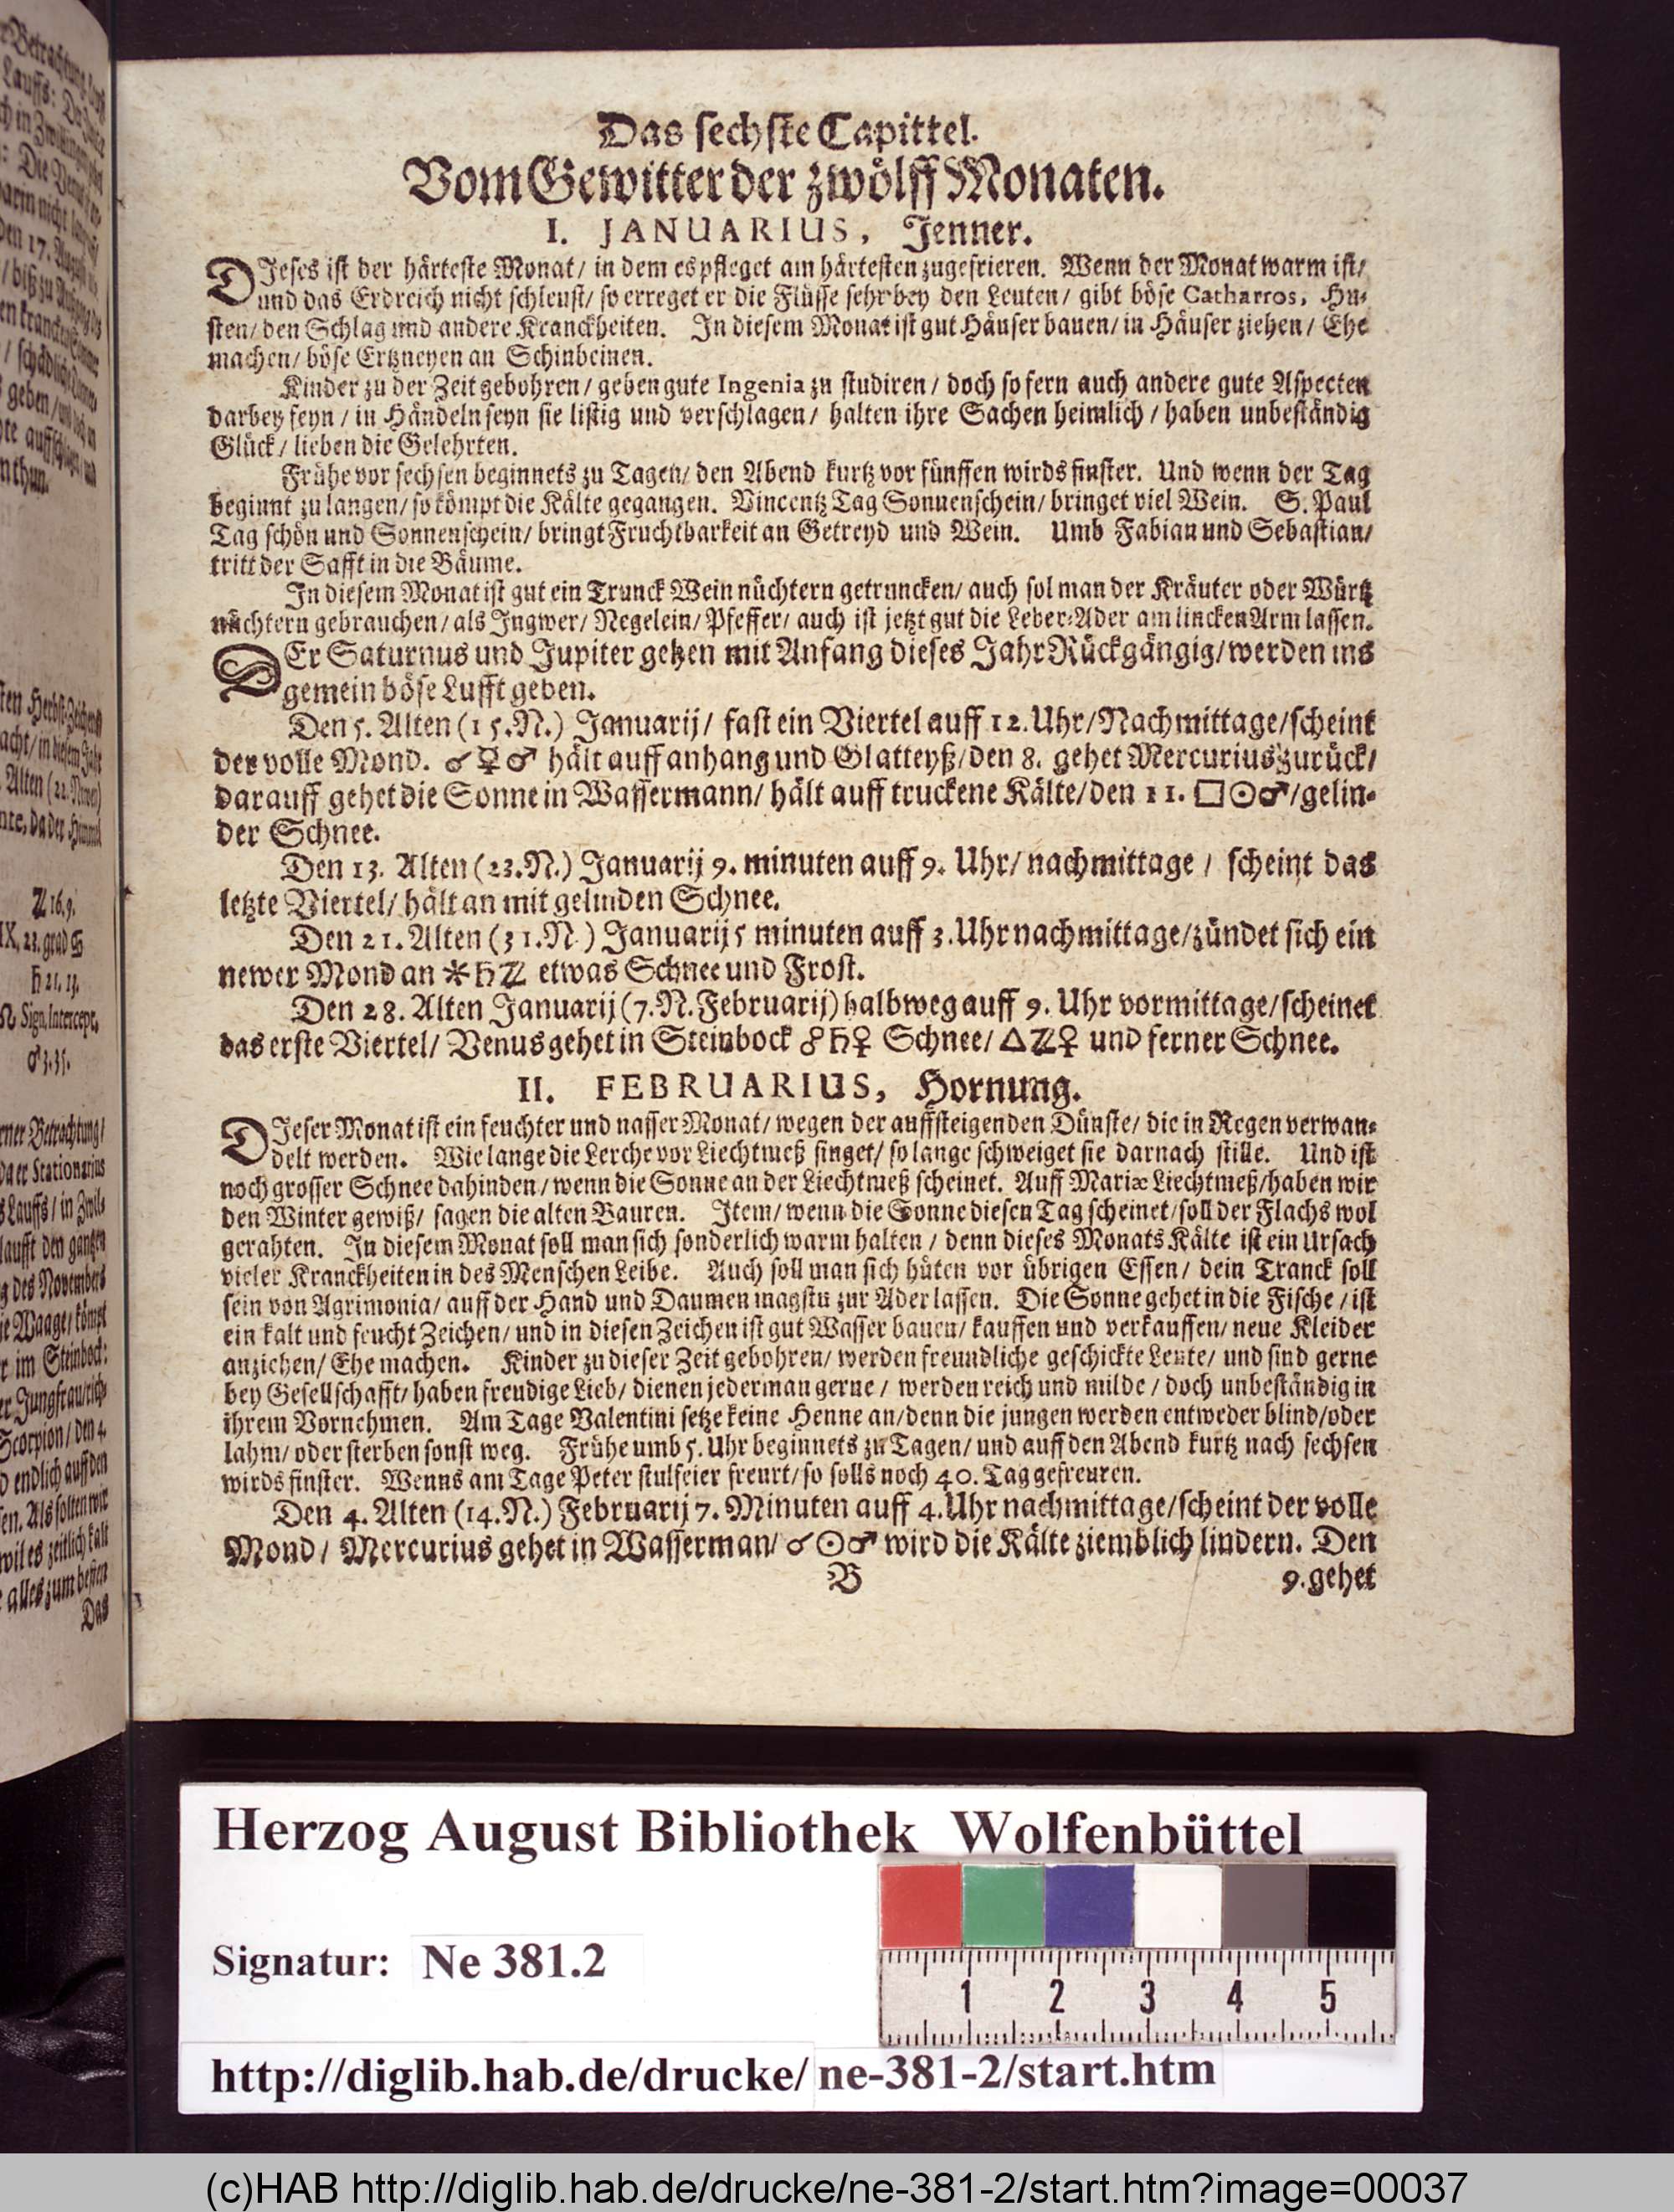 Das sechste Capittel.
Vom Gewitter der zwölff Monaten.
I. JANUARIUS, Jenner.
DJeses ist der härteste Monat/ in dem es pfleget am härtesten zugefrieren. Wenn der Monat warm ist/
und das Erdreich nicht schleust/ so erreget er die Flüsse sehr bey den Leuten/ gibt böse Catharros, Hu-
sten/ den Schlag und andere Kranckheiten. In diesem Monat ist gut Häuser bauen/ in Häuser ziehen/ Ehe
machen/ böse Ertzneyen an Schinbeinen.
Kinder zu der Zeit gebohren/ geben gute Ingenia zu studiren/ doch so fern auch andere gute Aspecten
darbey seyn/ in Händeln seyn sie listig und verschlagen/ halten ihre Sachen heimlich/ haben unbeständig
Glück/ lieben die Gelehrten.
Frühe vor sechsen beginnets zu Tagen/ den Abend kurtz vor fünffen wirds finster. Und wenn der Tag
beginnt zu langen/ so kömpt die Kälte gegangen. Vincentz Tag Sonnenschein/ bringet viel Wein. S. Paul
Tag schön und Sonnenschein/ bringt Fruchtbarkeit an Getreyd und Wein. Umb Fabian und Sebastian/
tritt der Safft in die Bäume.
In diesem Monat ist gut ein Trunck Wein nüchtern getruncken/ auch sol man der Kräuter oder Würtz
nüchtern gebrauchen/ als Ingwer/ Negelein/ Pfeffer/ auch ist jetzt gut die Leber-Ader am lincken Arm lassen.
DEr Saturnus und Jupiter gehen mit Anfang dieses Jahr Rückgängig/ werden ins
gemein böse Lufft geben.
Den 5. Alten (15. N.) Januarij/ fast ein Viertel auff 12. Uhr/ Nachmittage/ scheint
der volle Mond. ☌ ☿ ♂ hält auff anhang und Glatteyß/ den 8. gehet Mercurius zurück/
darauff gehet die Sonne in Wassermann/ hält auff truckene Kälte/ den 11. □☉♂/ gelin-
der Schnee.
Den 13. Alten (23. N.) Januarij 9. minuten auff 9. Uhr/ nachmittage/ scheint das
letzte Viertel/ hält an mit gelinden Schnee.
Den 21. Alten (31. N.) Januarij 5 minuten auff 3. Uhr nachmittage/ zündet sich ein
newer Mond an ⚹ ♄ ♃ etwas Schnee und Frost.
Den 28. Alten Januarij (7. N. Februarij) halbweg auff 9. Uhr vormittage/ scheinet
das erste Viertel/ Venus gehet in Steinbock ☍ ♄ ♀ Schnee/ △ ♃ ♀ und ferner Schnee.
II. FEBRUARIUS, Hornung.
DJeser Monat ist ein feuchter und nasser Monat/ wegen der auffsteigenden Dünste/ die in Regen verwan-
delt werden. Wie lange die Lerche vor Liechtmeß singet/ so lange schweiget sie darnach stille. Und ist
noch grosser Schnee dahinden/ wenn die Sonne an der Liechtmeß scheinet. Auff Mariæ Liechtmeß/ haben wir
den Winter gewiß/ sagen die alten Bauren. Item/ wenn die Sonne diesen Tag scheinet/ soll der Flachs wol
gerahten. In diesem Monat soll man sich sonderlich warm halten/ denn dieses Monats Kälte ist ein Ursach
vieler Kranckheiten in des Menschen Leibe. Auch soll man sich hüten vor übrigen Essen/ dein Tranck soll
sein von Agrimonia/ auff der Hand und Daumen magstu zur Ader lassen. Die Sonne gehet in die Fische/ ist
ein kalt und feucht Zeichen/ und in diesen Zeichen ist gut Wasser bauen/ kauffen und verkauffen/ neue Kleider
anziehen/ Ehe machen. Kinder zu dieser Zeit gebohren/ werden freundliche geschickte Leute/ und sind gerne
bey Gesellschafft/ haben freudige Lieb/ dienen jederman gerne/ werden reich und milde/ doch unbeständig in
ihrem Vornehmen. Am Tage Valentini setze keine Henne an/ denn die jungen werden entweder blind/ oder
lahm/ oder sterben sonst weg. Frühe umb 5. Uhr beginnets zu Tagen/ und auff den Abend kurtz nach sechsen
wirds finster. Wenns am Tage Peter stulfeier freurt/ so solls noch 40. Tag gefreuren.
Den 4. Alten (14. N.) Februarij 7. Minuten auff 4. Uhr nachmittage/ scheint der volle
Mond/ Mercurius gehet in Wasserman/ ☌ ☉ ♂ wird die Kälte ziemblich lindern. Den
B 9. gehet
Herzog August Bibliothek Wolfenbüttel
Signatur: Ne 381.2
1 2 3 4 5
http://diglib.hab.de/drucke/ne-381-2/start.htm
(c)HAB http://diglib.hab.de/drucke/ne-381-2/start.htm?image=00037